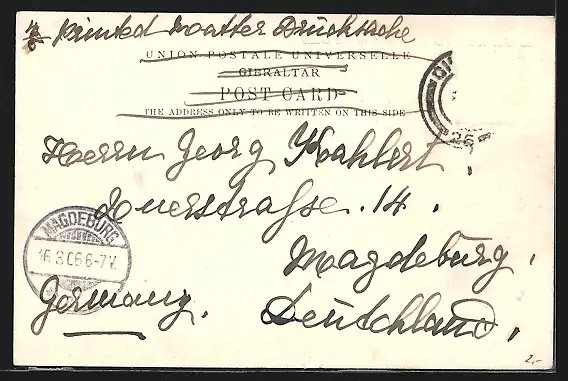 Printed Matter Drucksache
UNION POSTALE UNIVERSELLE
GIBRALTAR
POST CARD
THE ADDRESS ONLY TO BE WRITTEN ON THIS SIDE
GI
26
Herrn Georg Kahlert.
Querstrasse. 14.
MAGDEBURG
16.3.06 6-7V.
Magdeburg.
Germany.
Deutschland.
2,-